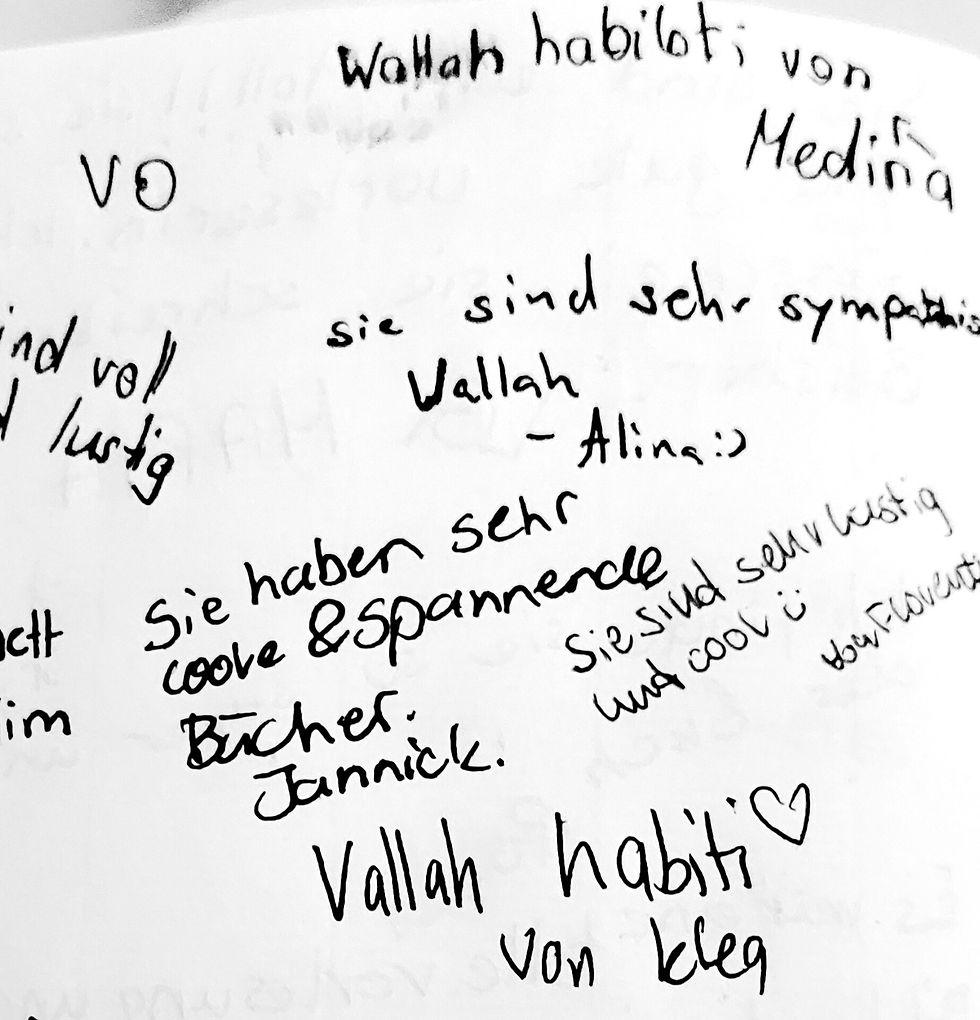 Wallah habibti von
Medina
VO
sie sind sehr sympathis
Wallah
- Alina :)
ind voll
lustig
Sie haben sehr
coole & spannende
Bücher.
Jannick.
Sie sind sehr lustig
und cool ü
nett
im
Vallah habiti ♡
von klea